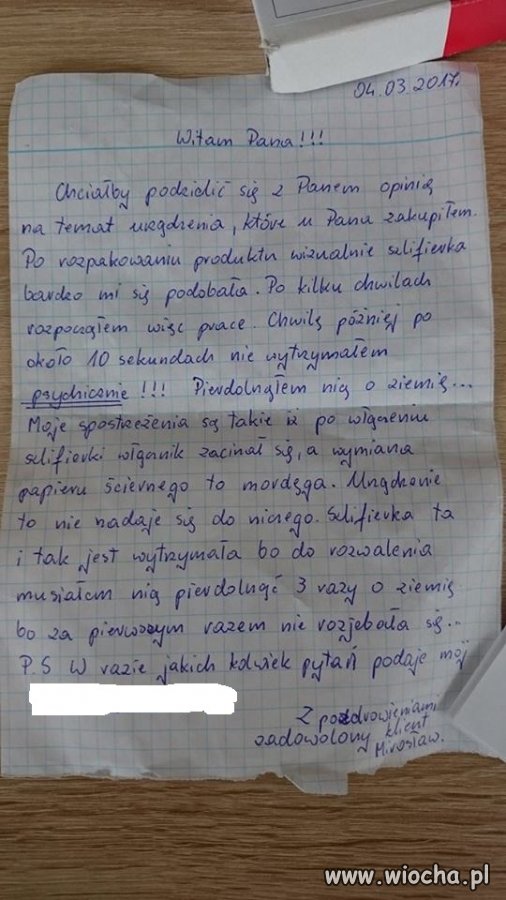 04.03.2017r.
Witam Pana!!!
Chciałby podzidić się z Panem opinią
na temat urządzenia, które u Pana zakupiłem.
Po rozpakowaniu produktu wizualnie szlifierka
bardzo mi się podobała. Po kilku chwilach
rozpocząłem więc prace. Chwilę później po
około 10 sekundach nie wytrzymałem
psychicznie!!! Pierdolnąłem nią o ziemię...
Moje spostrzeżenia są takie iż po włączeniu
szlifierki włącznik zacinał się, a wymiana
papieru ściernego to mordęga. Urządzenie
to nie nadaje się do niczego. Szlifierka ta
i tak jest wytrzymała bo do rozwalenia
musiałem nią pierdolnąć 3 razy o ziemię
bo za pierwszym razem nie rozjebała się...
P.S W razie jakich kolwiek pytań podaje mój
Z pozdrowieniami
zadowolony klient
Mirosław.
www.wiocha.pl